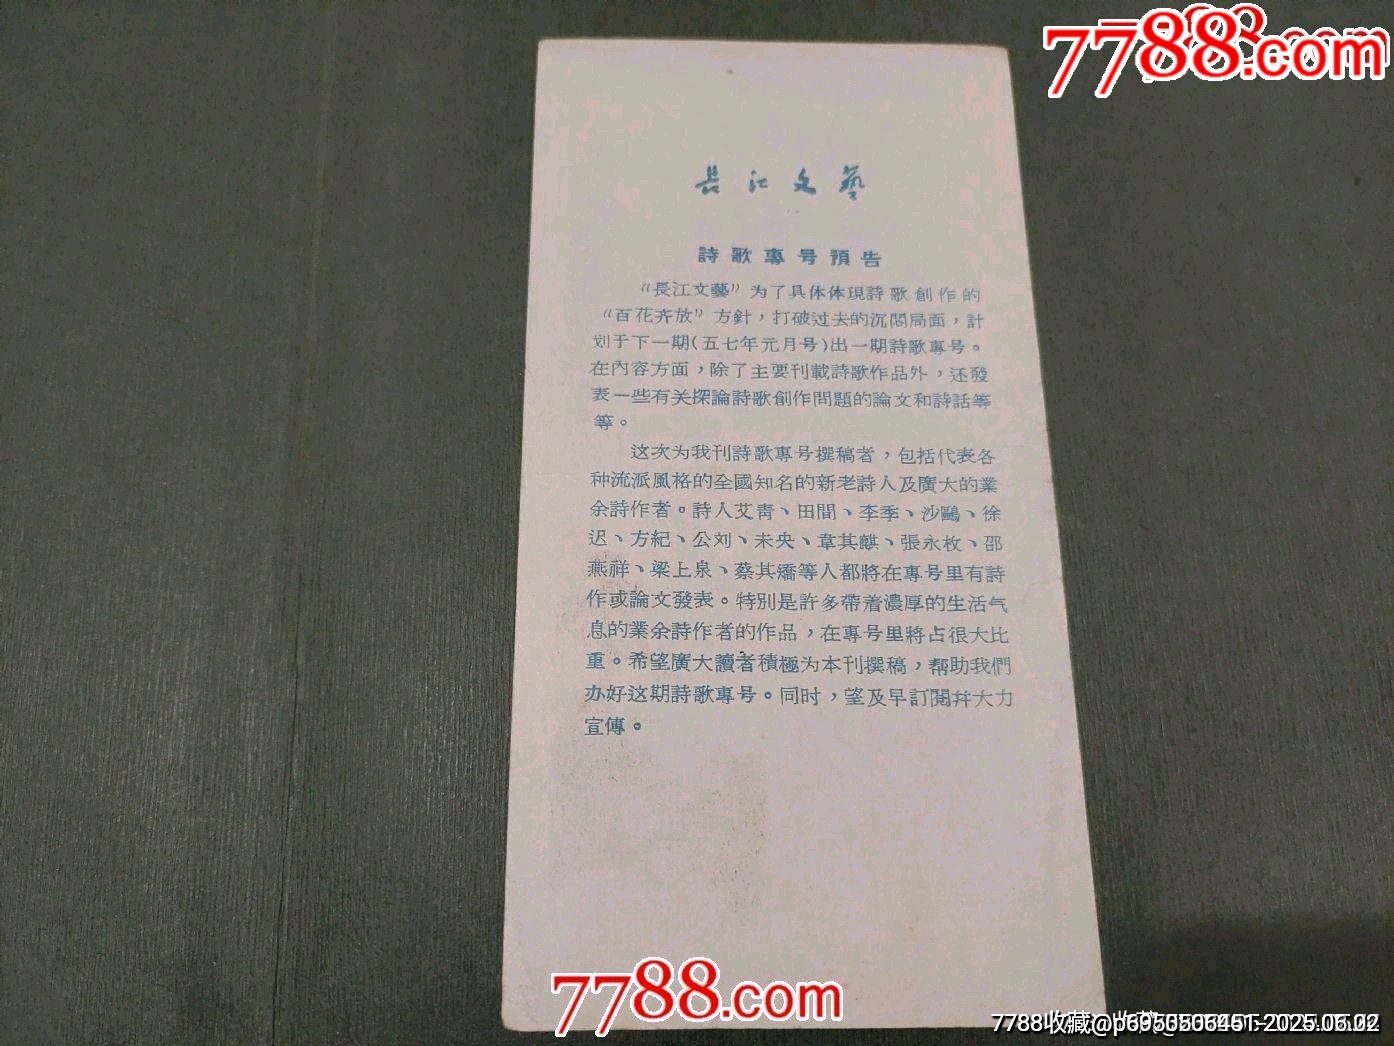 7788.com
長江文藝
詩歌專号預告
“長江文藝”为了具体体現詩歌創作的
“百花齐放”方針，打破过去的沉悶局面，計
划于下一期(五七年元月号)出一期詩歌專号。
在內容方面，除了主要刊載詩歌作品外，还發
表一些有关探論詩歌創作問題的論文和詩話等
等。
这次为我刊詩歌專号撰稿者，包括代表各
种流派風格的全國知名的新老詩人及廣大的業
余詩作者。詩人艾靑、田間、李季、沙鷗、徐
迟、方紀、公刘、未央、韋其麒、張永枚、邵
燕祥、梁上泉、蔡其矯等人都將在專号里有詩
作或論文發表。特別是許多帶着濃厚的生活气
息的業余詩作者的作品，在專号里將占很大比
重。希望廣大讀者積極为本刊撰稿，帮助我們
办好这期詩歌專号。同时，望及早訂閱幷大力
宣傳。
7788.com
7788收藏@p6950506451-2025.06.02